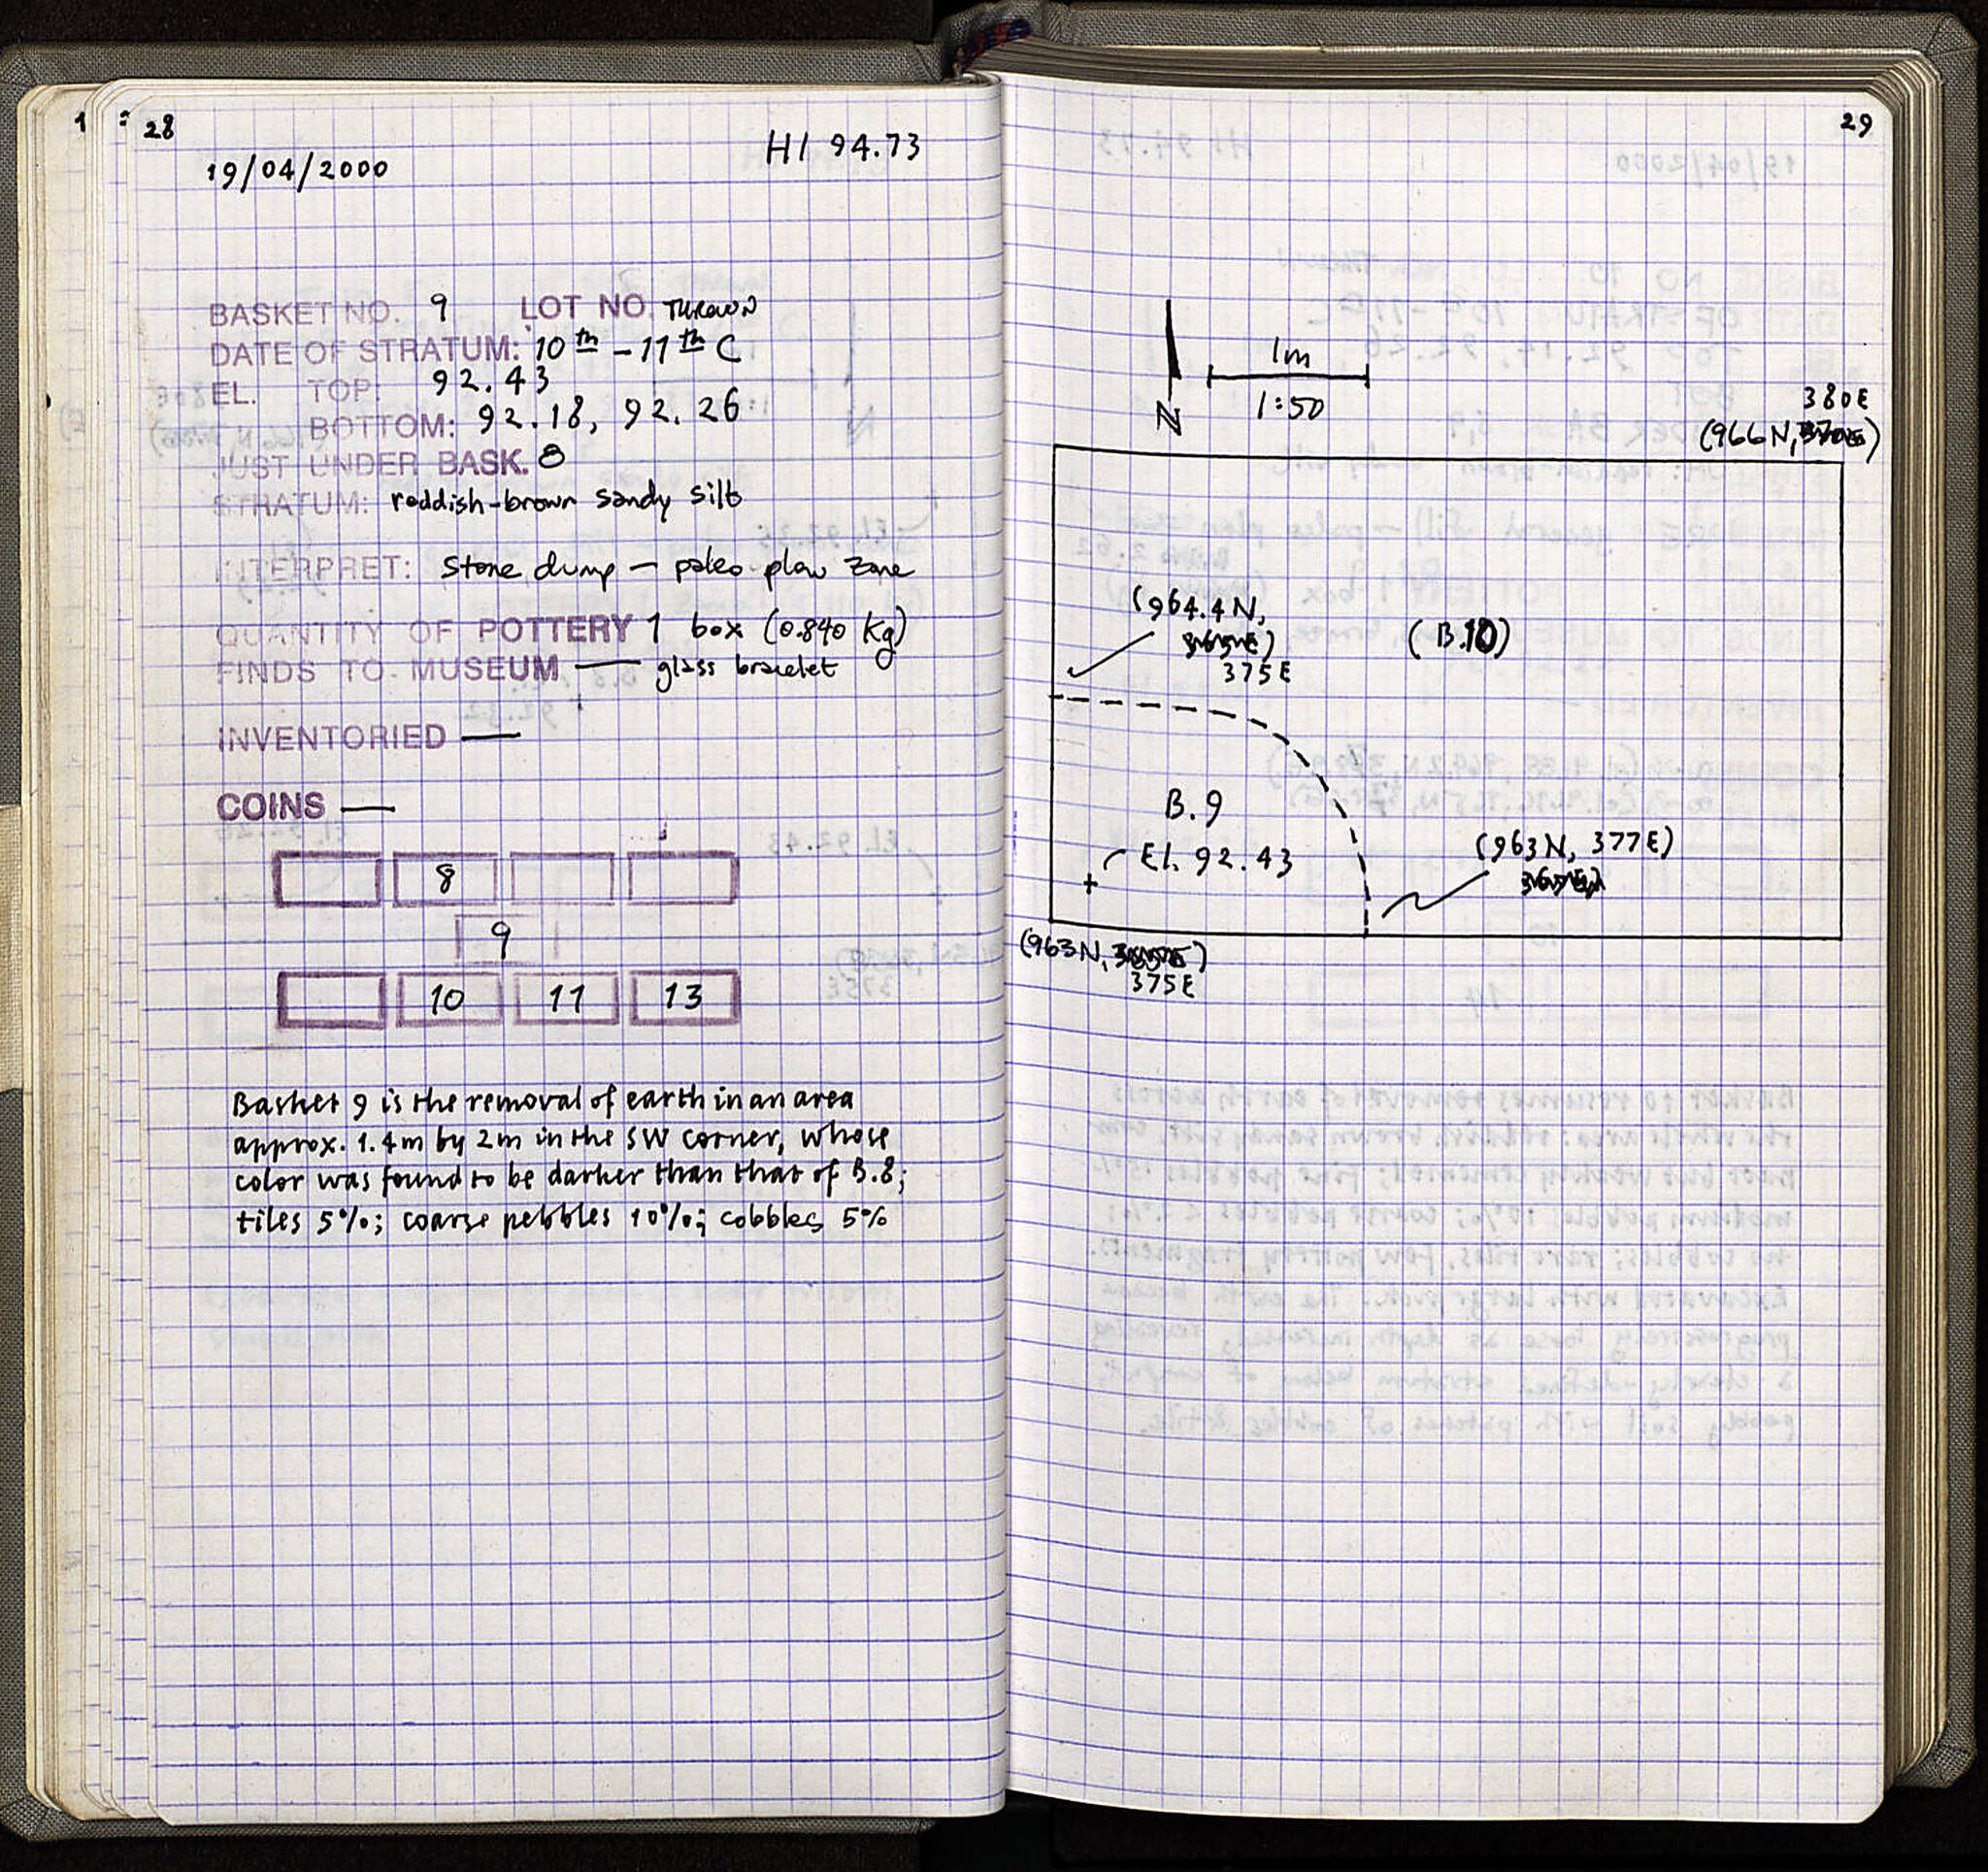 1
28
19/04/2000
H1 94.73
BASKET NO. 9 LOT NO. THROWN
DATE OF STRATUM: 10th - 11th C
EL. TOP: 92.43
BOTTOM: 92.18, 92.26
JUST UNDER BASK. 8
STRATUM: reddish-brown sandy silt
INTERPRET: stone dump - paleo plow zone
QUANTITY OF POTTERY 1 box (0.840 Kg)
FINDS TO MUSEUM — glass bracelet
INVENTORIED —
COINS —
8
9
10 11 13
Basket 9 is the removal of earth in an area
approx. 1.4m by 2m in the SW corner, whose
color was found to be darker than that of B.8;
tiles 5%; coarse pebbles 10%; cobbles 5%
29
N
1m
1:50
380E
(966N, )
(964.4N,
375E
(B.10)
B.9
El. 92.43
(963N, 377E)
(963N, )
375E